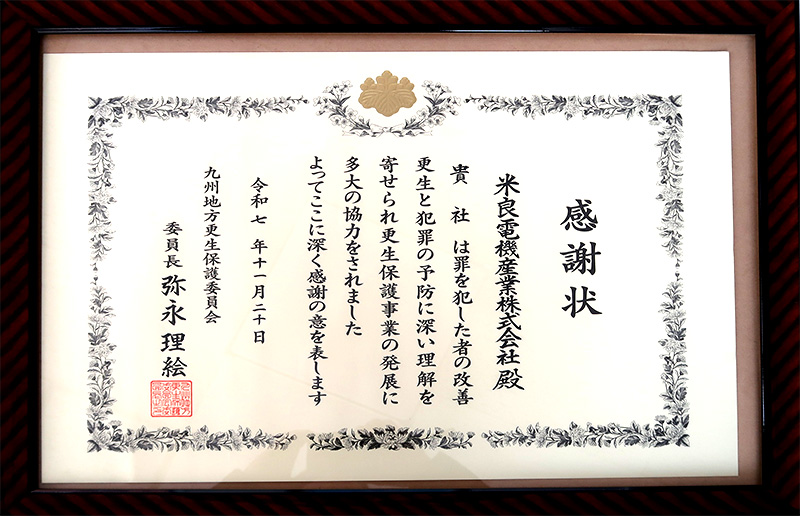 感謝状
米良電機産業株式会社殿
貴社は罪を犯した者の改善
更生と犯罪の予防に深い理解を
寄せられ更生保護事業の発展に
多大の協力をされました
よってここに深く感謝の意を表します
令和七年十一月二十日
九州地方更生保護委員会
委員長 弥永理絵